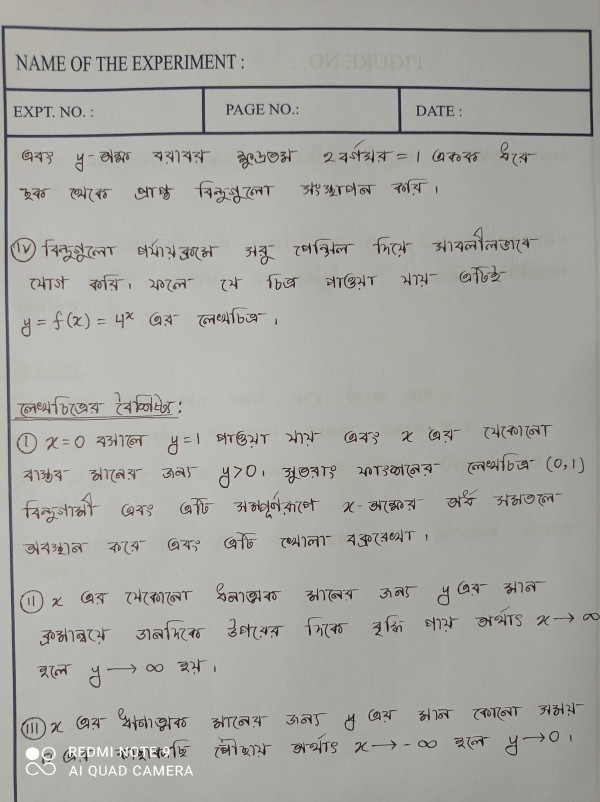 NAME OF THE EXPERIMENT :
EXPT. NO. : PAGE NO.: DATE :
এবং y-অক্ষ বরাবর ক্ষুদ্রতম 2 বর্গঘর = 1 একক ধরে
ছক থেকে প্রাপ্ত বিন্দুগুলো সংস্থাপন করি।
(IV) বিন্দুগুলো পর্যায়ক্রমে সরু পেন্সিল দিয়ে সাবলীলভাবে
যোগ করি। ফলে যে চিত্র পাওয়া যায় এটিই
y = f(x) = 4ˣ এর লেখচিত্র।
লেখচিত্রের বৈশিষ্ট্য:
(I) x=0 বসালে y=1 পাওয়া যায় এবং x এর যেকোনো
বাস্তব মানের জন্য y>0. সুতরাং ফাংশনের লেখচিত্র (0,1)
বিন্দুগামী এবং এটি সম্পূর্ণরূপে x-অক্ষের অর্ধ সমতলে
অবস্থান করে এবং এটি খোলা বক্ররেখা।
(II) x এর যেকোনো ধনাত্মক মানের জন্য y এর মান
ক্রমান্বয়ে ডানদিকে উপরের দিকে বৃদ্ধি পায় অর্থাৎ x → ∞
হলে y → ∞ হয়।
(III) x এর ঋনাত্মক মানের জন্য y এর মান কোনো সময়
এর কাছাকাছি পৌছায় অর্থাৎ x → -∞ হলে y → 0।
REDMI NOTE 9
AI QUAD CAMERA